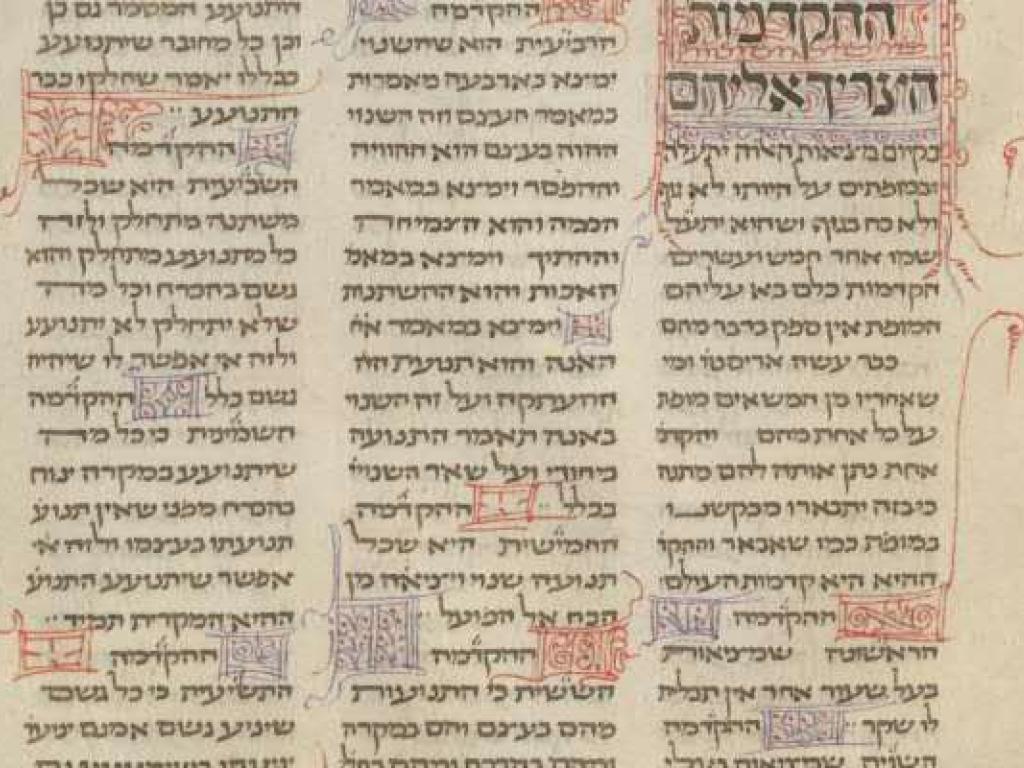 ההקדמות
הצריך אליהם
בקיום מציאות האלוה יתעלה
ובמופתים על היותו לא גוף
ולא כח בגוף ושהוא יתעל
שמו אחד חמש ועשרים
הקדמות כלם בא עליהם
המופת אין ספק בדבר מהם
כבר עשה אריסטו ומי
שאחריו מן המשאים מופת
על כל אחת מהם והקדמ
אחת נתן אותה להם מתנה
כי בזה יתבארו מבקשנו
במופת כמו שאבאר וההקד
ההיא היא קדמות העולם
ההקדמה
הראשונה שמציאות
בעל שעור אחד אין תכלית
לו שקר ההקדמה
השנית שמציאות בעלי
ההקדמה
הרביעית הוא שהשנוי
ימצא בארבעה מאמרות
במאמר העצם וזה השנוי
ההוה בעצם הוא ההוויה
וההפסד וימצא במאמר
הכמה והוא הצמיחה
וההתוך וימצא במאמ
האכות והוא ההשתנות
וימצא במאמר אה
האנה והוא תנועת הה
ההעתקה ועל זה השנוי
באנה תאמר התנועה
ביחוד ועל שאר השנויי
בכלל ההקדמה
החמישית היא שכל
תנועה שנוי ויציאה מן
הכח אל הפועל
ההקדמה
הששית כי התנועות
מהם בעצם ומהם במקרה
ומהם בהכרח ומהם
התנועע המסמר גם כן
וכן כל מחובר שיתנועע
בכללו יאמר שחלקו כבר
התנועע
ההקדמה
השביעית היא שכל
משתנה מתחלק ולזה
כל מתנועע מתחלק והוא
גשם בהכרח וכל מה
שלא יתחלק לא יתנועע
ולזה אי אפשר לו שיהיה
גשם כלל ההקדמה
השמינית כי כל מה
שיתנועע במקרה ינוח
בהכרח מפני שאין תנוע
תנועתו בעצמו ולזה אי
אפשר שיתנועע התנוע
ההיא המקרית תמיד
ההקדמה
התשיעית כי כל גשם
שיניע גשם אמנם יניעו